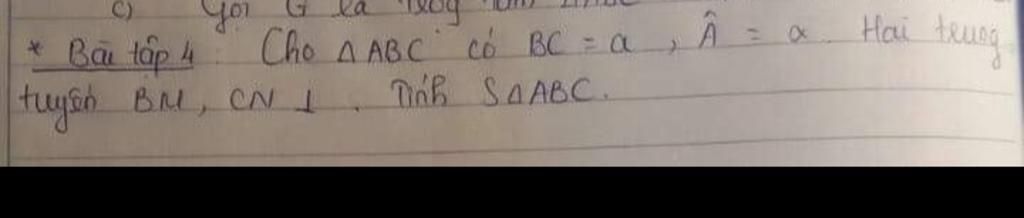 c) Gọi G là trọng tâm
* Bài tập 4: Cho △ABC có BC = a, Â = α. Hai trung
tuyến BM, CN ⊥. Tính S△ABC.